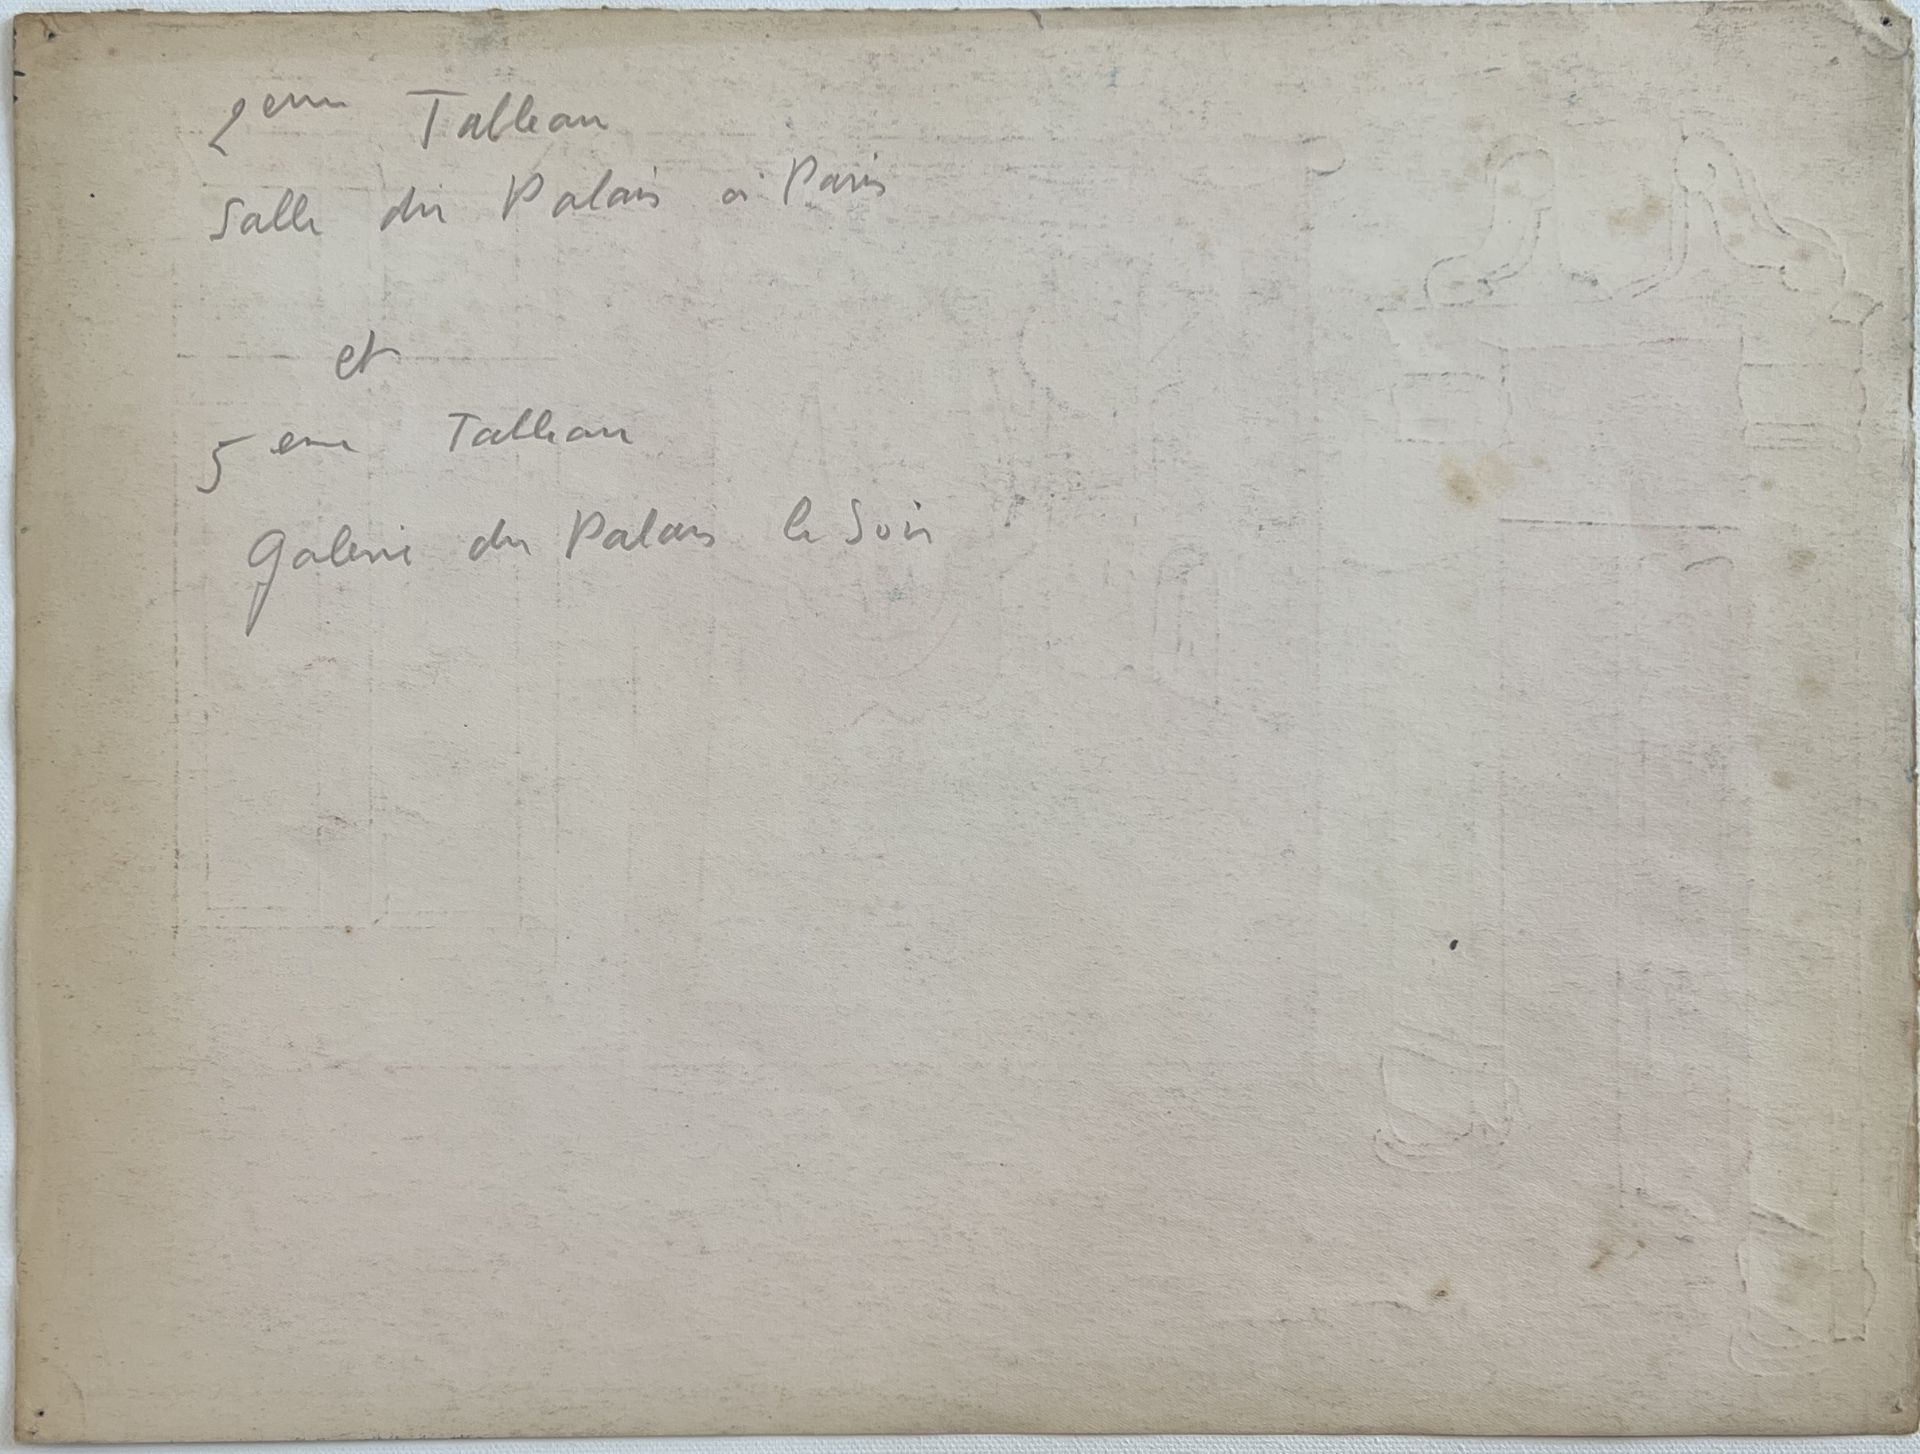 2eme Tableau
Salle du Palais à Paris
et
5eme Tableau
Galerie du Palais le Soir